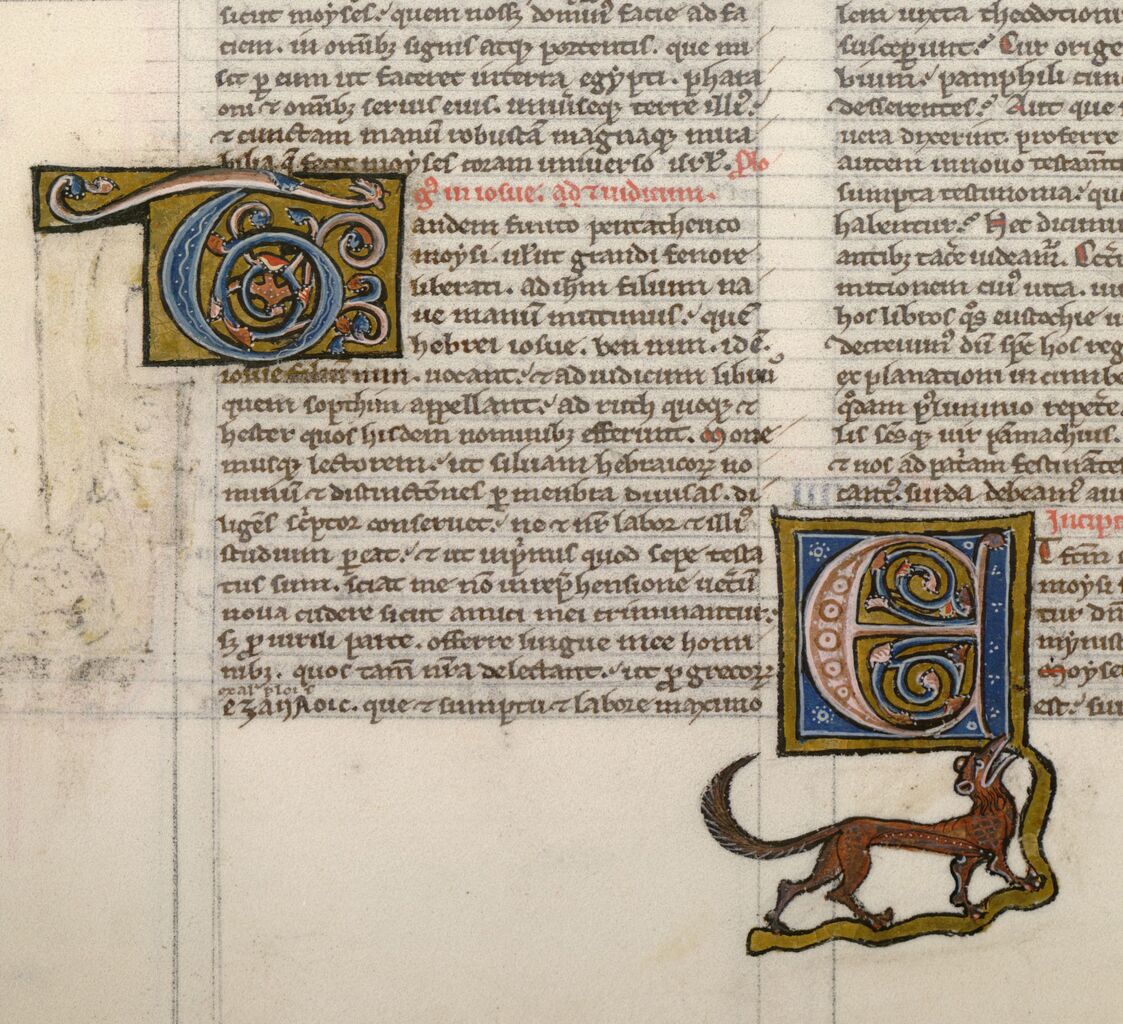 sicut moyses. quem nosset dominus facie ad fa
ciem. in omnibus signis atque portentis. que mi
sit per eum ut faceret in terra egypti. phara
oni et omnibus servis eius. universeque terre illius.
et cunctam manum robustam magnaque mira
bilia que fecit moyses coram universo israel. Plo
gus in iosue. ad et iudicum.
Tandem finito pentatheuco
moysi. velut grandi fenore
liberati. ad ihesum filium na
ve manum mittimus. quem
hebrei iosue. ben nun. idem.
iosue filium nun. vocant. et ad iudicum librum
quem sopthim appellant. ad ruth quoque et
hester quos hisdem nominibus efferunt. Mone
musque lectorem. ut silvam hebraicorum no
minum et distinctiones per menbra divisas. di
ligens scriptor conservet. ne et noster labor et illius
studium pereat. et ut in primis quod sepe testa
tus sum. sciat me non in reprehensione veterum
nova cudere sicut amici mei criminantur.
sed pro virili parte. offerre lingue mee homi
nibus. quos tamen nostra delectant. ut pro grecorum
que et sumptu et labore maximo
lem iuxta theodotionem
susceperunt. Cur orige
bium. pamphili cun
desserentes. Aut que
vera dixerunt. proferre
autem in novo testamento
sumpta testimonia. que
habentur. Hec dicimus
antibus tacere videamur. Ceterum
hos libros quos eustochie v
decrevimus dum spiritus hos reg
explanationi incumbe
quodam postliminio repetere.
lis sanctusque vir pamachius.
et nos ad patriam festinantes
cantus. surda debeamus aure
Incipit
ET factum
moysi s
tur dominus
minist
Moyses
est. sur